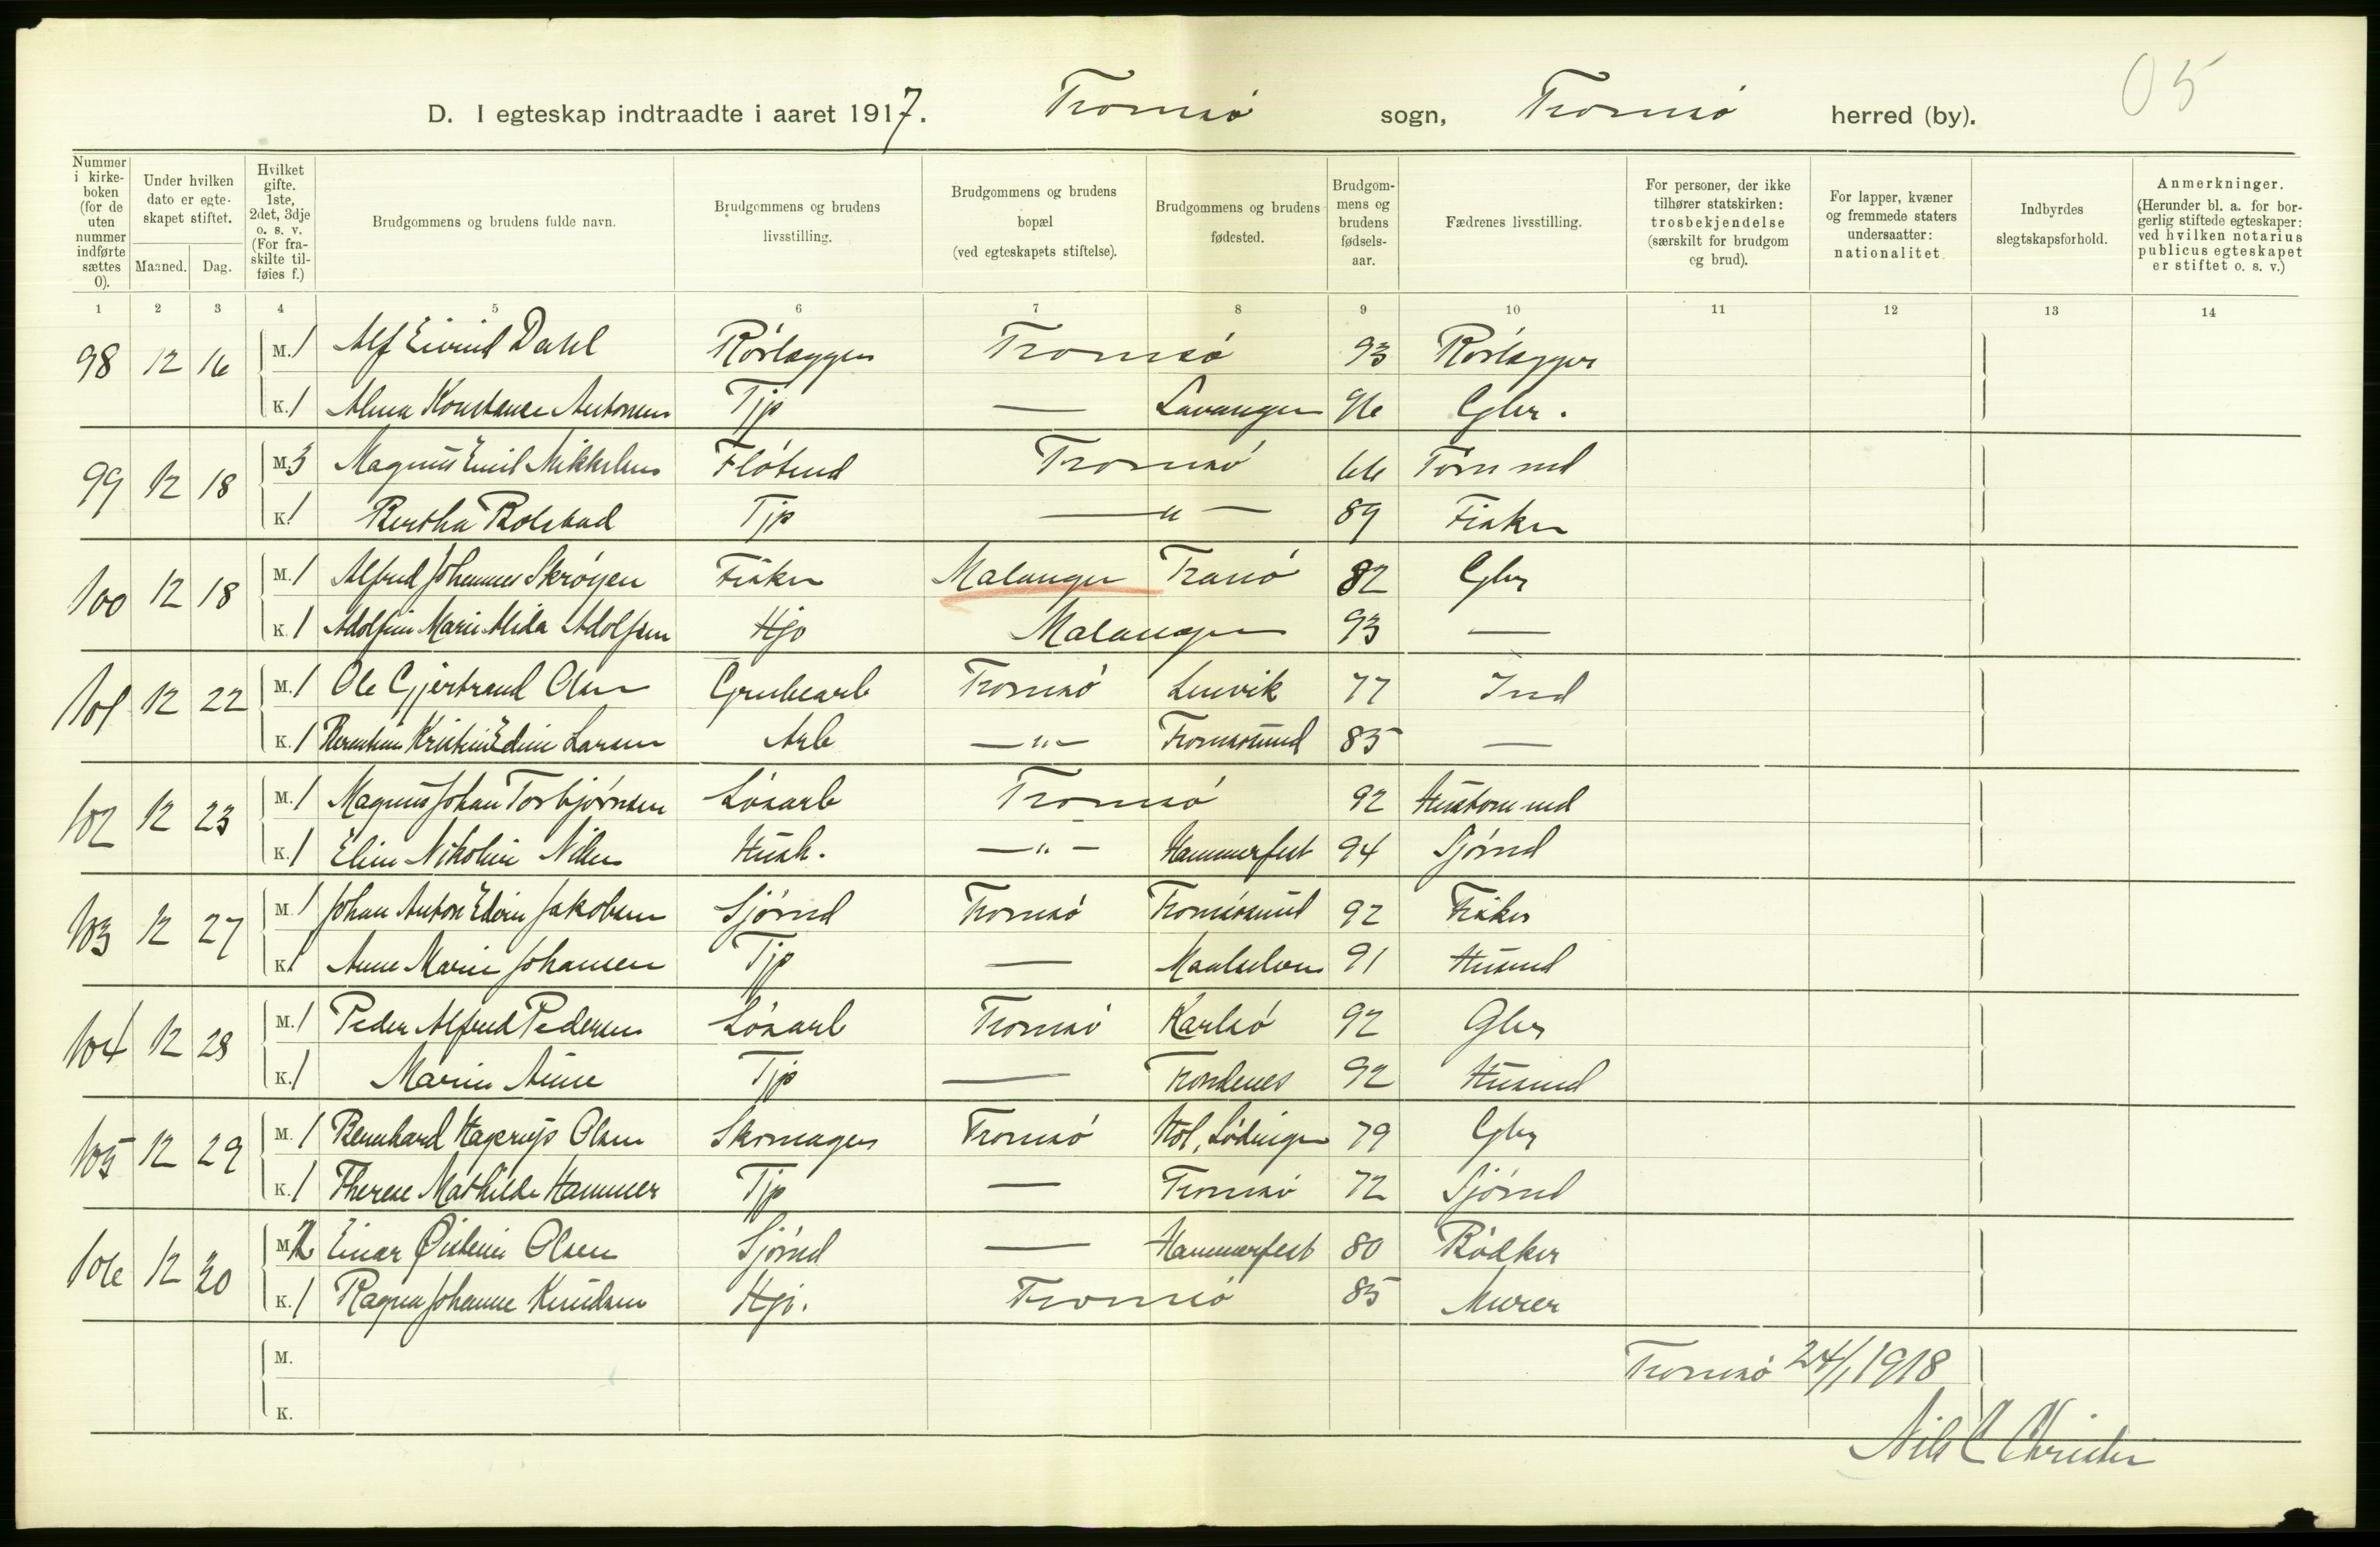 05
D. I egteskap indtraadte i aaret 1917. Tromsø sogn, Tromsø herred (by).
Nummer i kirkeboken (for de uten nummer indførte sættes 0).
Under hvilken dato er egteskapet stiftet.
Maaned. Dag.
Hvilket gifte. 1ste, 2det, 3dje o. s. v. (For fraskilte tilføies f.)
Brudgommens og brudens fulde navn.
Brudgommens og brudens livsstilling.
Brudgommens og brudens bopæl (ved egteskapets stiftelse).
Brudgommens og brudens fødested.
Brudgommens og brudens fødselsaar.
Fædrenes livsstilling.
For personer, der ikke tilhører statskirken: trosbekjendelse (særskilt for brudgom og brud).
For lapper, kvæner og fremmede staters undersaatter: nationalitet.
Indbyrdes slegtskapsforhold.
Anmerkninger. (Herunder bl. a. for borgerlig stiftede egteskaper: ved hvilken notarius publicus egteskapet er stiftet o. s. v.)
1 2 3 4 5 6 7 8 9 10 11 12 13 14
98 12 16 M. 1 Alf Eivind Dahl Rørlægger Tromsø 93 Rørlægger
K. 1 Alma Konstanse Antonsen Tjp — Lavangen 96 Gbr.
99 12 18 M. 3 Magnus Emil Mikkelsen Fløtmd Tromsø 66 Tømmd
K. 1 Bertha Bolstad Tjp — " — 89 Fisker
100 12 18 M. 1 Alfred Johannes Skrøyen Fisker Malangen Tranø 82 Gbr
K. 1 Adolfine Marie Alida Adolfsen Hjo Malangen 93 —
101 12 22 M. 1 Ole Gjertrand Olsen Grubearb Tromsø Lenvik 77 Ind
K. 1 Kristine Edine Larsen Arb — " — Tromsøsund 85 —
102 12 23 M. 1 Magnus Johan Torbjørnsen Løsarb Tromsø 92 Hustømmd
K. 1 Eline Nikoline Nilsen Hush. — " — Hammerfest 94 Sjømd
103 12 27 M. 1 Johan Anton Edvin Jakobsen Sjømd Tromsø Tromsøsund 92 Fisker
K. 1 Anne Marie Johansen Tjp — Maalselven 91 Husmd
104 12 28 M. 1 Peder Alfred Pedersen Løsarb Tromsø Karlsø 92 Gbr
K. 1 Marie Aune Tjp — Trondenes 92 Husmd
105 12 29 M. 1 Bernhard Hagerup Olsen Skomager Tromsø Hol, Lødingen 79 Gbr
K. 1 Therese Mathilde Hammer Tjp — Tromsø 72 Sjømd
106 12 30 M. 2 Einar Øistein Olsen Sjømd — Hammerfest 80 Bødker
K. 1 Ragna Johanne Knudsen Hjo. Tromsø 85 Murer
M.
K.
Tromsø 24/1 1918
Nils C Christie